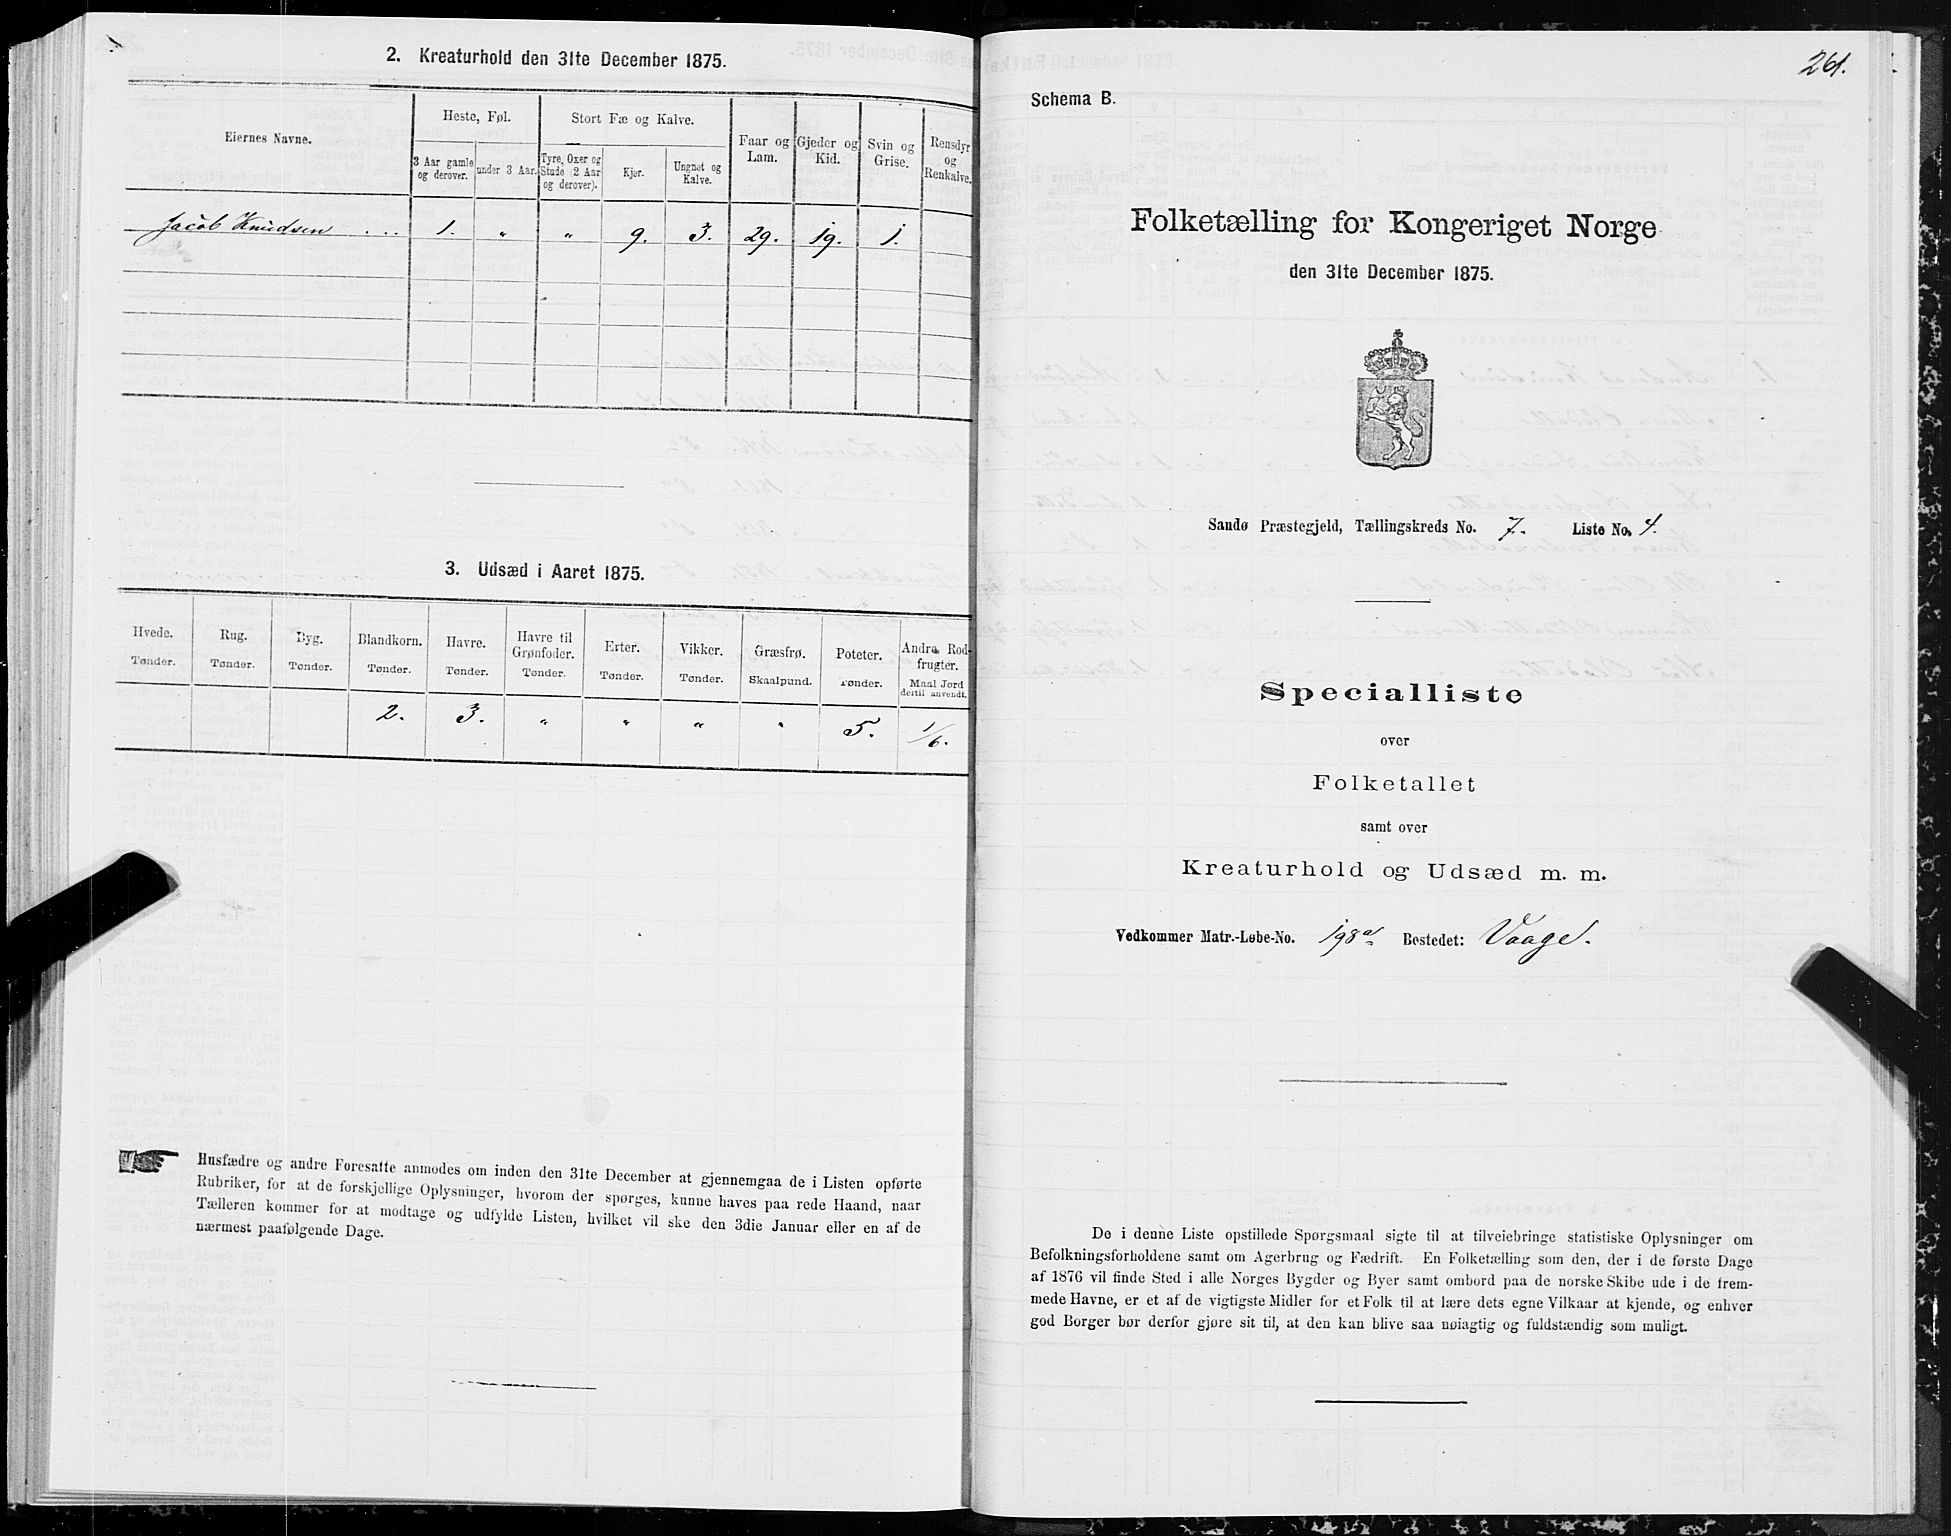 2. Kreaturhold den 31te December 1875.
Eiernes Navne.
Heste, Føl.
Stort Fæ og Kalve.
Faar og Lam.
Gjeder og Kid.
Svin og Grise.
Rensdyr og Renkalve.
3 Aar gamle og derover.
under 3 Aar.
Tyre, Oxer og Stude (2 Aar og derover).
Kjør.
Ungnøt og Kalve.
Jacob Knudsen . . . 1. " " 9. 3. 29. 19. 1.
3. Udsæd i Aaret 1875.
Hvede. Tønder.
Rug. Tønder.
Byg. Tønder.
Blandkorn. Tønder.
Havre. Tønder.
Havre til Grønfoder. Tønder.
Erter. Tønder.
Vikker. Tønder.
Græsfrø. Skaalpund.
Poteter. Tønder.
Andre Rodfrugter. Maal Jord dertil anvendt.
2. 3. " " " " 5. 1/6.
Husfædre og andre Foresatte anmodes om inden den 31te December at gjennemgaa de i Listen opførte
Rubriker, for at de forskjellige Oplysninger, hvorom der spørges, kunne haves paa rede Haand, naar
Tælleren kommer for at modtage og udfylde Listen, hvilket vil ske den 3die Januar eller en af de
nærmest paafølgende Dage.
261.
Schema B.
Folketælling for Kongeriget Norge
den 31te December 1875.
Sandø Præstegjeld, Tællingskreds No. 7. Liste No. 4.
Specialliste
over
Folketallet
samt over
Kreaturhold og Udsæd m. m.
Vedkommer Matr.-Løbe-No. 198a Bostedet: Vaage.
De i denne Liste opstillede Spørgsmaal sigte til at tilveiebringe statistiske Oplysninger om
Befolkningsforholdene samt om Agerbrug og Fædrift. En Folketælling som den, der i de første Dage
af 1876 vil finde Sted i alle Norges Bygder og Byer samt ombord paa de norske Skibe ude i de frem-
mede Havne, er et af de vigtigste Midler for et Folk til at lære dets egne Vilkaar at kjende, og enhver
god Borger bør derfor gjøre sit til, at den kan blive saa nøiagtig og fuldstændig som muligt.